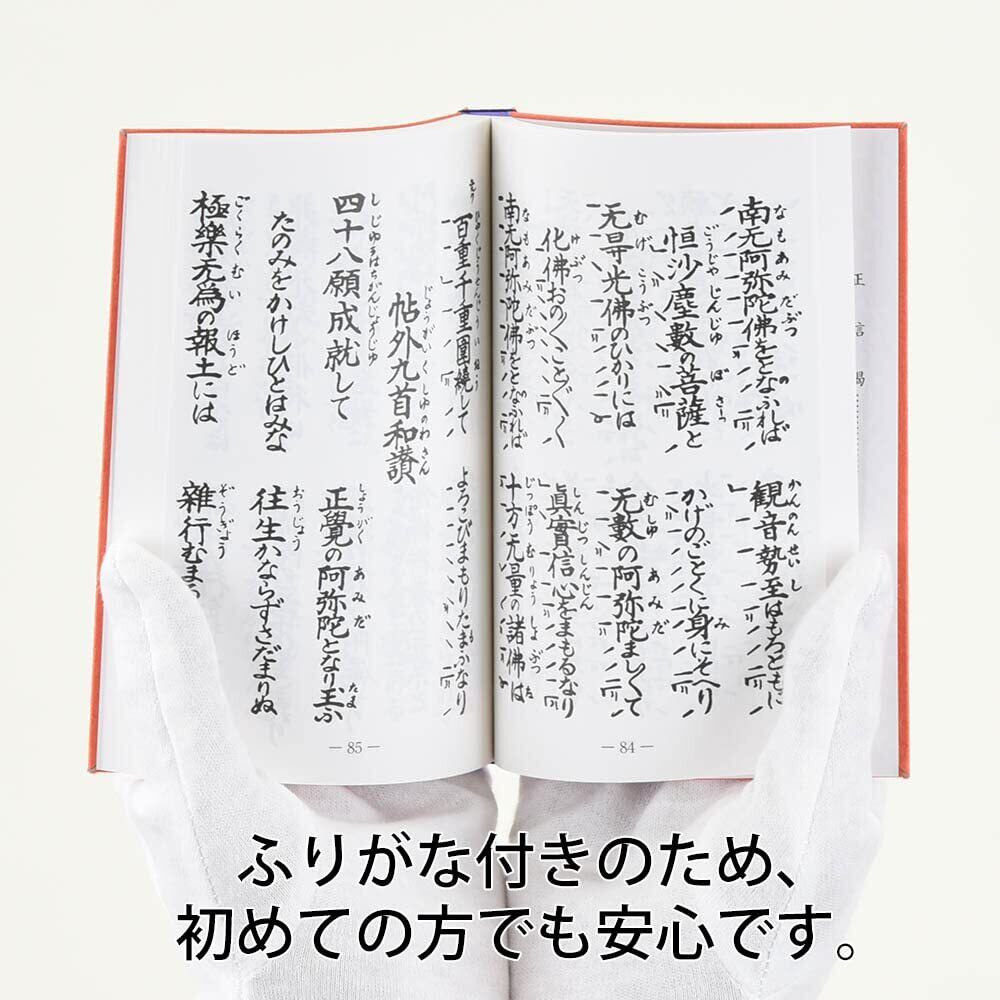 正信偈
南无阿弥陀佛をとなふれば
観音勢至はもろともに
恒沙塵數の菩薩と
かげのごとくに身にそへり
无㝵光佛のひかりには
无數の阿弥陀ましまして
化佛おのくことぐく
眞實信心をまもるなり
南无阿弥陀佛をとなふれば
十方无量の諸佛は
百重千重圍繞して
よろこびまもりたまふなり
帖外九首和讃
四十八願成就して
正覺の阿弥陀となり玉ふ
たのみをかけしひとはみな
往生かならずさだまりぬ
極樂无爲の報土には
雜行むまる
— 84 —
— 85 —
ふりがな付きのため、
初めての方でも安心です。